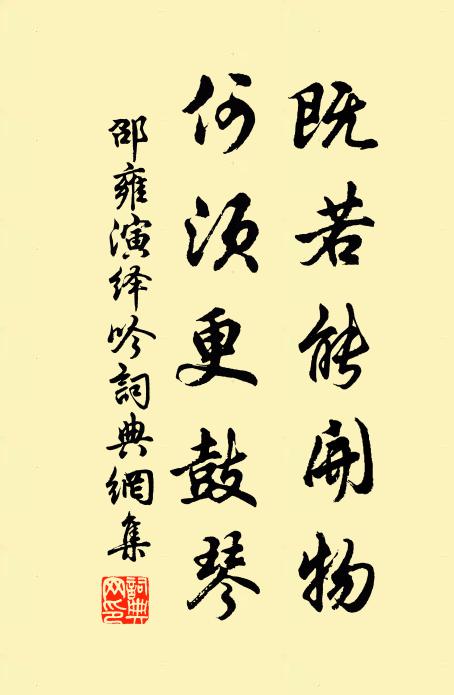 既若能開物
何須更鼓琴
邵雍演绎吟詞典網集